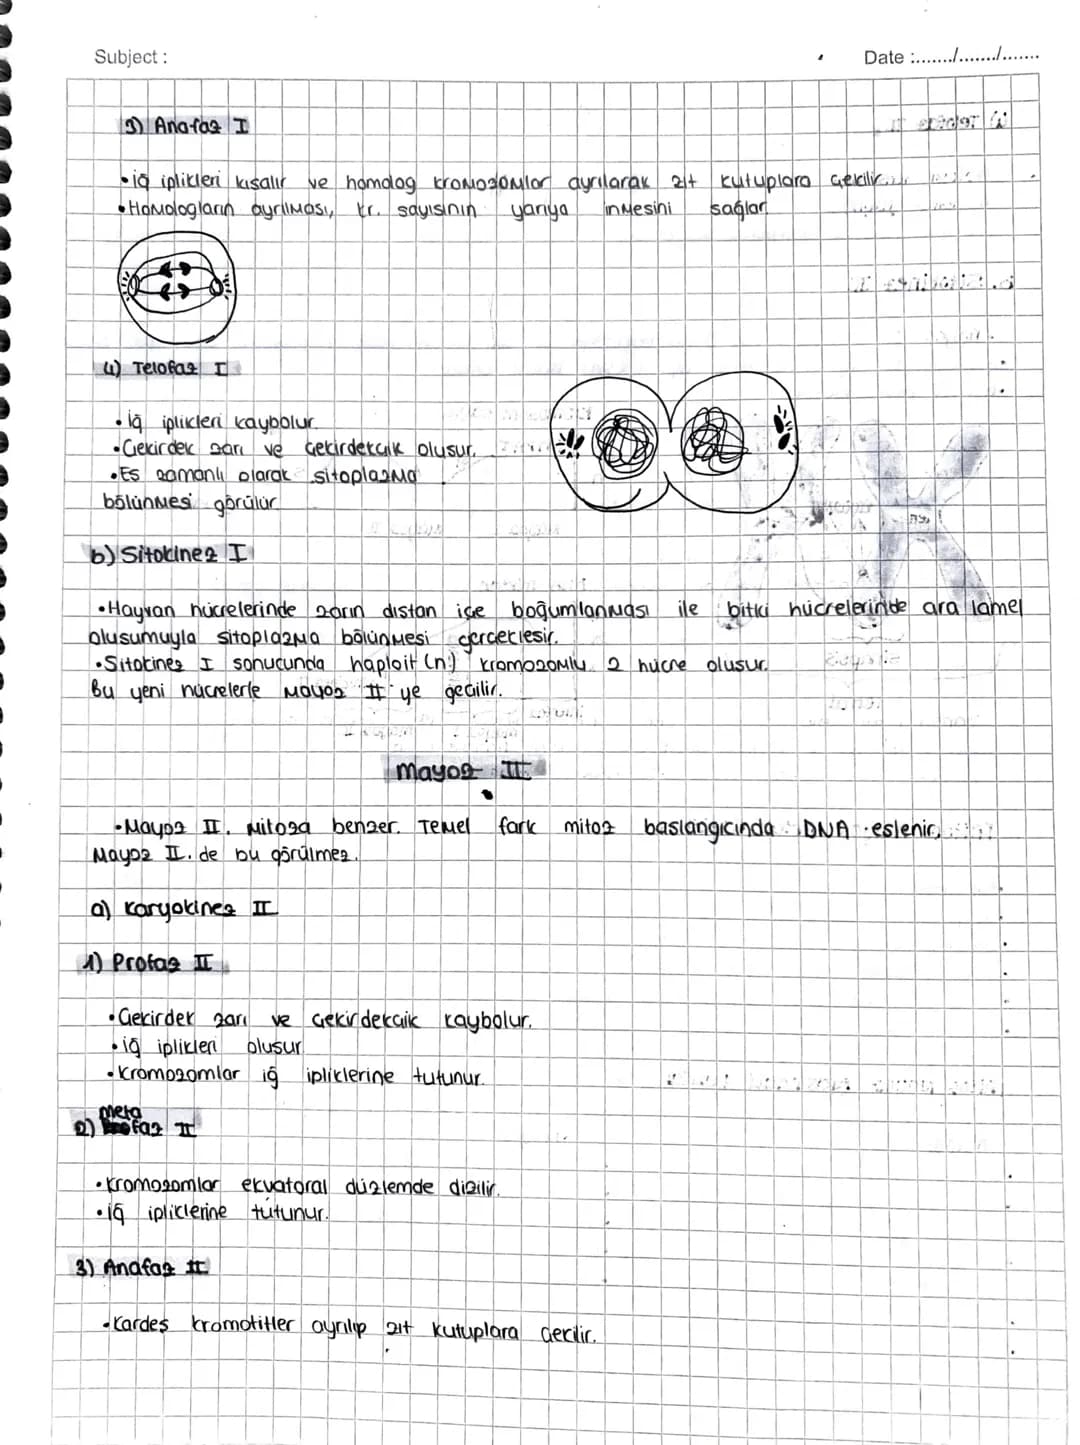 Subject :
Date :......./......./.......
3) Anafaz I
•iğ iplikleri kısalır ve homolog kromozomlar ayrılarak zıt kutuplara çekilir.
•Homologların ayrılması, kr. sayısının yarıya inmesini sağlar
4) Telofaz I
•İğ iplikleri kaybolur
•Çekirdek zarı ve çekirdekcik oluşur.
•Eş zamanlı olarak sitoplazma
bölünmesi görülür
b) Sitokinez I
•Hayvan hücrelerinde zarın dıstan içe boğumlanması ile bitki hücrelerinde ara lamel
olusumuyla sitoplazma bölünmesi gerçeklesir.
•Sitokinez I sonucunda haploit (n) kromozomlu 2 hücre olusur.
Bu yeni hücrelerle Mayoz II ye geçilir.
Mayoz II
•Mayoz II. Mitoza benzer. Temel fark mitoz baslangıcında DNA eslenir,
Mayoz II. de bu görülmez.
a) Karyokinez II
1) Profaz II
•Çekirdek zarı ve çekirdekcik kaybolur.
•iğ iplikleri olusur
•Kromozomlar iğ ipliklerine tutunur.
meta
2) faz II
•Kromozomlar ekvatoral düzlemde dizilir.
•iğ ipliklerine tutunur.
3) Anafaz II
•Kardeş kromatitler ayrılıp zıt kutuplara çekilir.